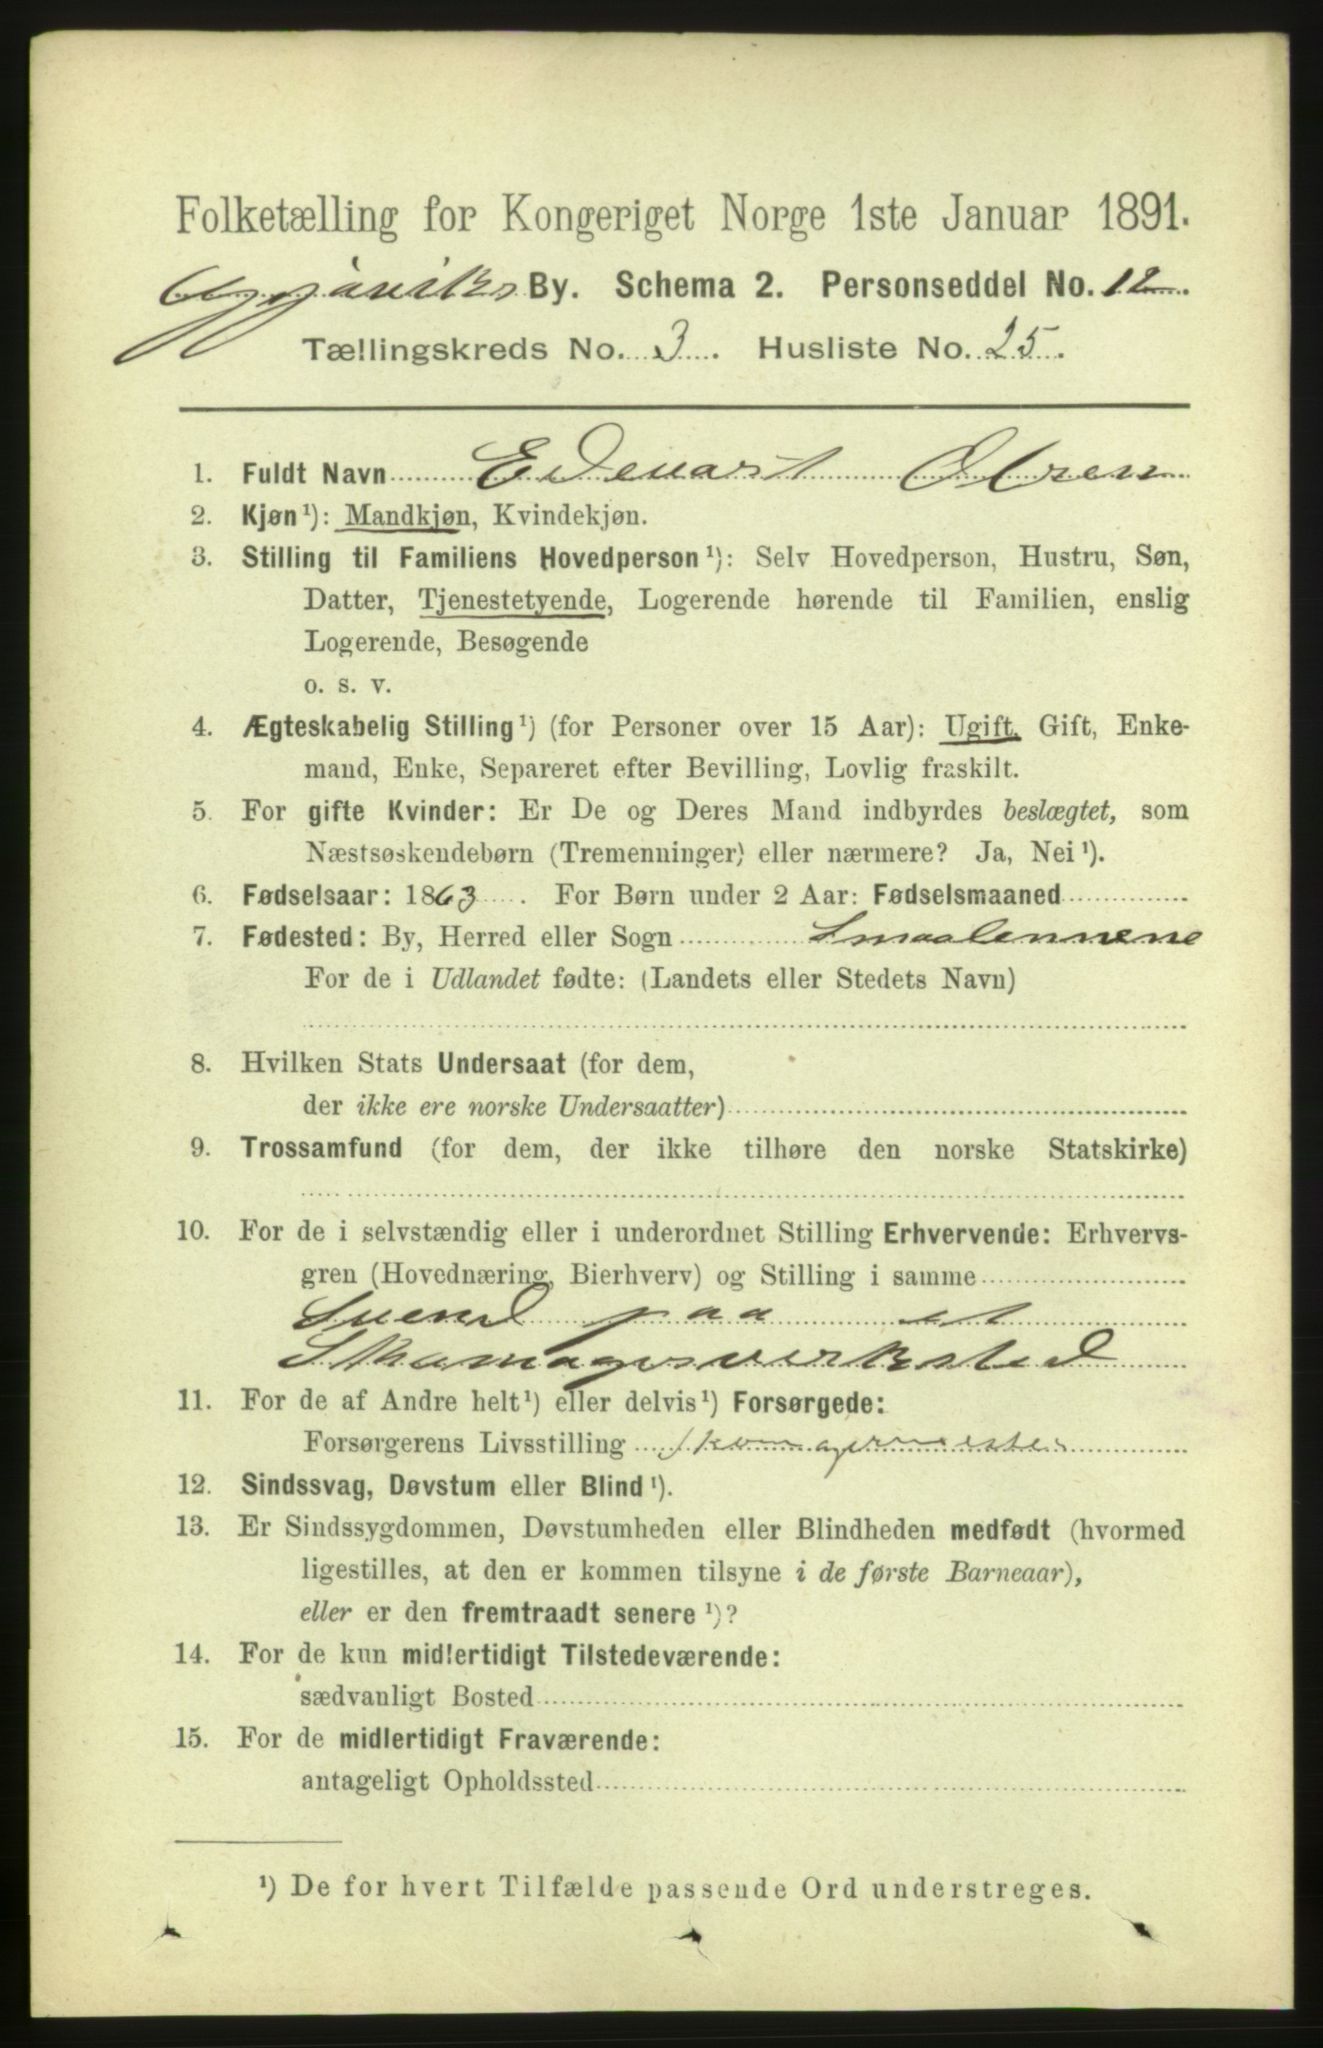 Folketælling for Kongeriget Norge 1ste Januar 1891.
Gjøviks By. Schema 2. Personseddel No. 12.
Tællingskreds No. 3. Husliste No. 25.
1. Fuldt Navn Edevart Olsen
2. Kjøn ¹): Mandkjøn, Kvindekjøn.
3. Stilling til Familiens Hovedperson ¹): Selv Hovedperson, Hustru, Søn,
Datter, Tjenestetyende, Logerende hørende til Familien, enslig
Logerende, Besøgende
o. s. v.
4. Ægteskabelig Stilling ¹) (for Personer over 15 Aar): Ugift, Gift, Enke-
mand, Enke, Separeret efter Bevilling, Lovlig fraskilt.
5. For gifte Kvinder: Er De og Deres Mand indbyrdes beslægtet, som
Næstsøskendebørn (Tremenninger) eller nærmere? Ja, Nei ¹).
6. Fødselsaar: 1863. For Børn under 2 Aar: Fødselsmaaned
7. Fødested: By, Herred eller Sogn Smaalennene
For de i Udlandet fødte: (Landets eller Stedets Navn)
8. Hvilken Stats Undersaat (for dem,
der ikke ere norske Undersaatter)
9. Trossamfund (for dem, der ikke tilhøre den norske Statskirke)
10. For de i selvstændig eller i underordnet Stilling Erhvervende: Erhvervs-
gren (Hovednæring, Bierhverv) og Stilling i samme
Svend paa et
Skomagerverksted
11. For de af Andre helt ¹) eller delvis ¹) Forsørgede:
Forsørgerens Livsstilling Skomagermester
12. Sindssvag, Døvstum eller Blind ¹).
13. Er Sindssygdommen, Døvstumheden eller Blindheden medfødt (hvormed
ligestilles, at den er kommen tilsyne i de første Barneaar),
eller er den fremtraadt senere ¹)?
14. For de kun midlertidigt Tilstedeværende:
sædvanligt Bosted
15. For de midlertidigt Fraværende:
antageligt Opholdssted
¹) De for hvert Tilfælde passende Ord understreges.